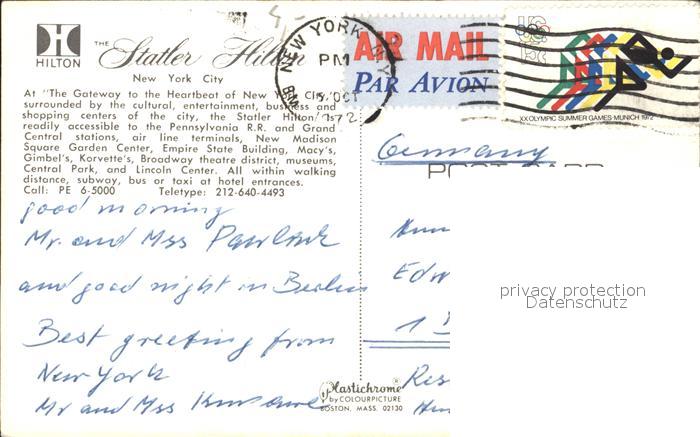 HILTON
THE Statler Hilton
New York City
At "The Gateway to the Heartbeat of New York City,"
surrounded by the cultural, entertainment, business and
shopping centers of the city, the Statler Hilton is
readily accessible to the Pennsylvania R.R. and Grand
Central stations, air line terminals, New Madison
Square Garden Center, Empire State Building, Macy's,
Gimbel's, Korvette's, Broadway theatre district, museums,
Central Park, and Lincoln Center. All within walking
distance, subway, bus or taxi at hotel entrances.
Call: PE 6-5000 Teletype: 212-640-4493
good morning
Mr. and Mss
and good night in Berlin
Best greeting from
New York
Mr and Mss
NEW YORK, NY
PM
5 OCT
1972
AIR MAIL
PAR AVION
US
15c
XX OLYMPIC SUMMER GAMES · MUNICH 1972
Germany
POST CARD
Edw
1 B
privacy protection
Datenschutz
Plastichrome®
by COLOURPICTURE
BOSTON, MASS. 02130